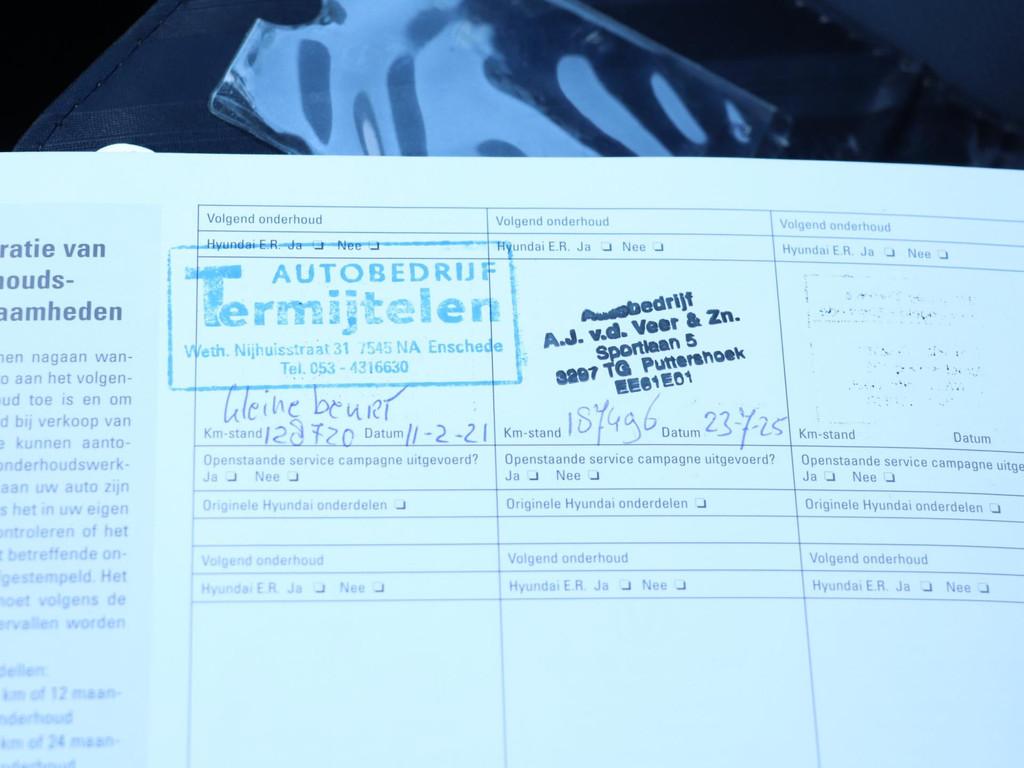 ratie van
houds-
aamheden
nen nagaan wan-
o aan het volgen-
ud toe is en om
d bij verkoop van
e kunnen aanto-
onderhoudswerk-
aan uw auto zijn
s het in uw eigen
ontroleren of het
t betreffende on-
fgestempeld. Het
noet volgens de
ervallen worden
dellen:
km of 12 maan-
nderhoud
km of 24 maan-
nderhoud
Volgend onderhoud
Hyundai E.R. Ja ❑ Nee ❑
AUTOBEDRIJF
Termijtelen
Weth. Nijhuisstraat 31 7545 NA Enschede
Tel. 053 - 4316630
kleine beurt
Km-stand 128720 Datum 11-2-21
Openstaande service campagne uitgevoerd?
Ja ❑ Nee ❑
Originele Hyundai onderdelen ❑
Volgend onderhoud
Hyundai E.R. Ja ❑ Nee ❑
Volgend onderhoud
Hyundai E.R. Ja ❑ Nee ❑
Autobedrijf
A.J. v.d. Veer & Zn.
Sportlaan 5
3297 TG Puttershoek
EE61E01
Km-stand 187496 Datum 23-7-25
Openstaande service campagne uitgevoerd?
Ja ❑ Nee ❑
Originele Hyundai onderdelen ❑
Volgend onderhoud
Hyundai E.R. Ja ❑ Nee ❑
Volgend onderhoud
Hyundai E.R. Ja ❑ Nee ❑
Km-stand Datum
Openstaande service campagne uitge
Ja ❑ Nee ❑
Originele Hyundai onderdelen ❑
Volgend onderhoud
Hyundai E.R. Ja ❑ Nee ❑